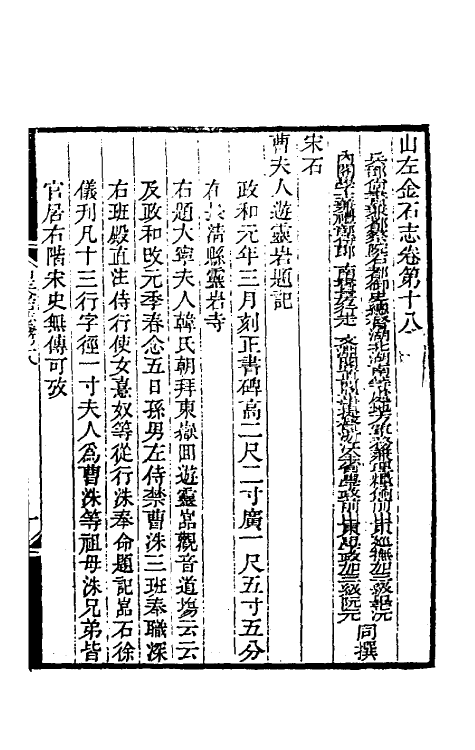 山左金石志卷第十八
兵部尚書都察院右都御史總督湖北湖南等處地方軍務兼理糧餉前山東巡撫加三級畢沅
內閣學士兼禮部侍郎 南書房行走 提督浙江全省學政前山東學政加三級阮元
同撰
宋石
曹夫人遊靈岩題記
政和元年三月刻正書碑高二尺二寸廣一尺五寸五分
在長清縣靈岩寺
右題大寧夫人韓氏朝拜東嶽回遊靈岩觀音道塲云云
及政和攺元季春念五日孫男左侍禁曹洙三班奉職深
右班殿直注侍行使女憙奴等從行洙奉命題記岩石徐
儀刊凡十三行字徑一寸夫人爲曹洙等祖母洙兄弟皆
官居右階宋史無傳可攷